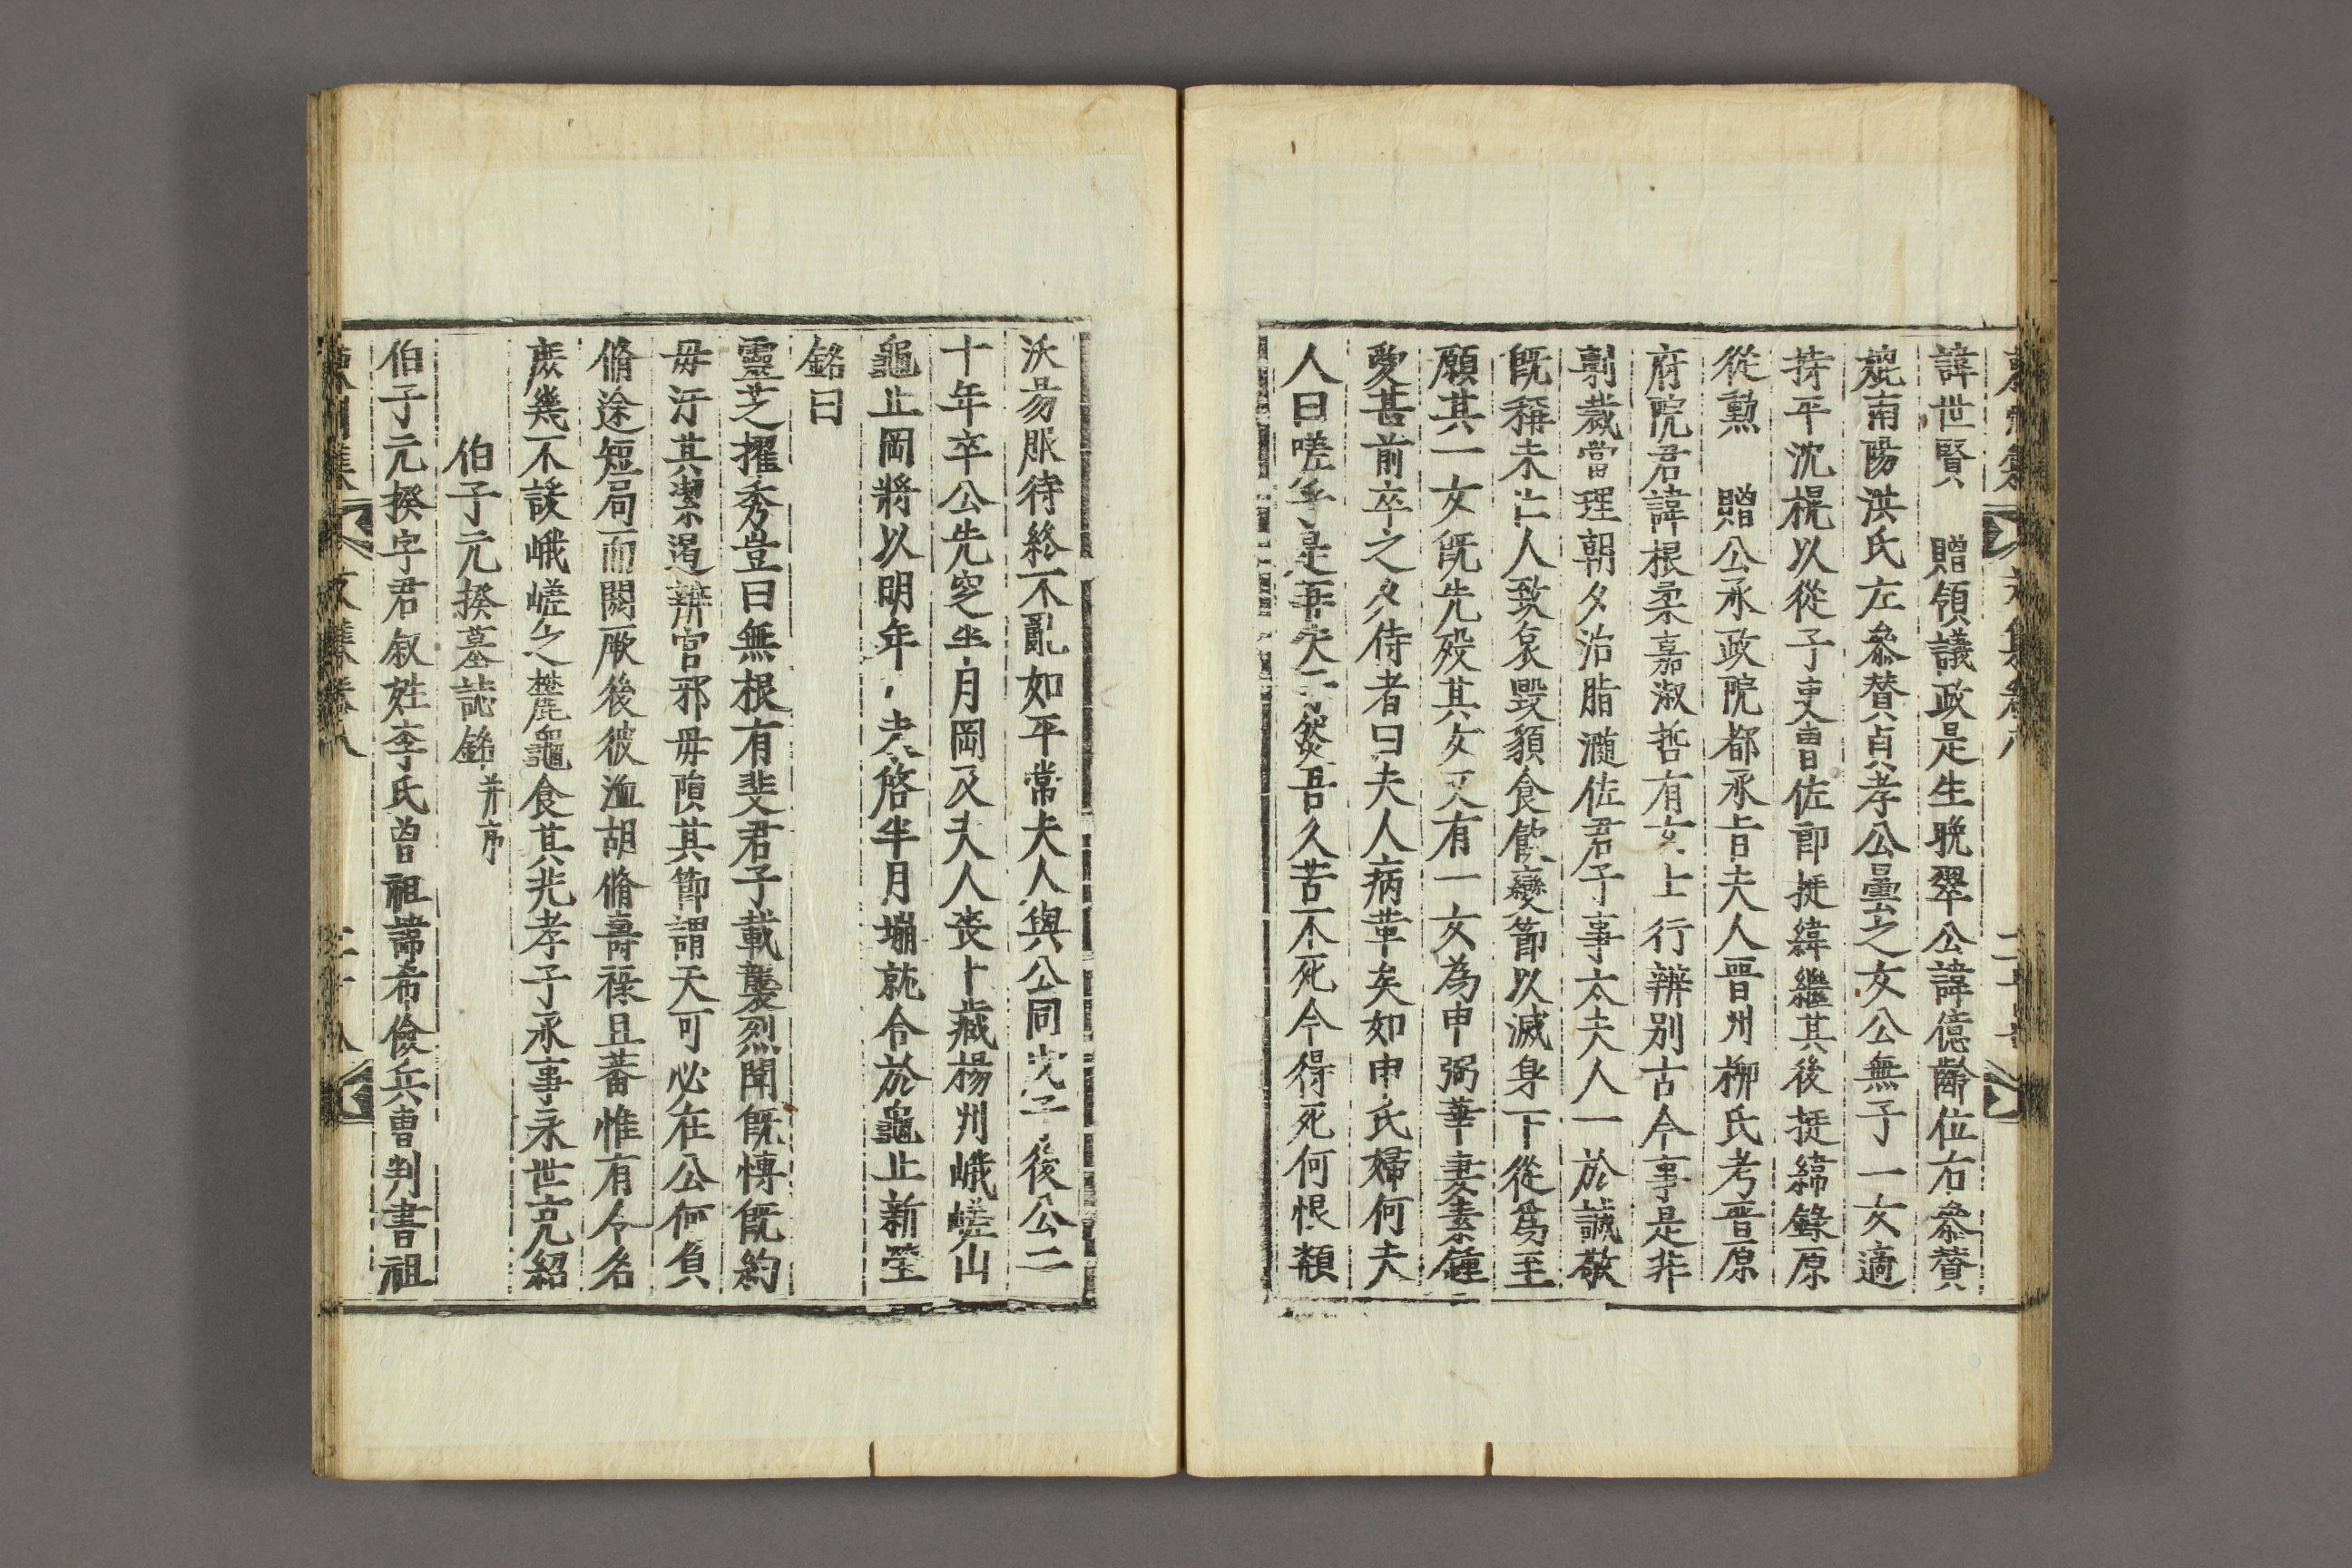 諱世賢 贈領議政是生晩翠公諱億齡位右叅賛
娩南陽洪氏左叅賛貞孝公曇之女公無子一女適
持平沈棿以從子吏曹佐郎挺緯繼其後挺緯錄原
從勲 贈公承政院都承旨夫人晋州柳氏考晋原
府院君諱根柔嘉淑哲有女士行辨别古今事是非
剸裁當理朝夕治脂瀡佐君子事太夫人一於誠敬
旣稱未亡人致哀毁顇食飮變節以滅身下從爲至
願其一女旣先歿其女又有一女為申弼華妻素鍾
愛甚前卒之夕侍者曰夫人病革矣如申氏婦何夫
人曰嗟乎是吾 然吾久苦不死今得死何恨類
沃昜服待終不亂如平常夫人與公同 後公二
十年卒公先窆 月岡及夫人喪卜藏楊州峨嵯山
龜止岡將以明年 啓半月塴就合於龜止新塋
銘曰
靈芝擢秀豈曰無根有斐君子載襲烈聞旣慱旣約
毋汙其潔遏辨宮邪毋隕其節謂天可必在公何負
脩途短局而閼厥後彼洫胡脩壽祿且蕃惟有令名
庶幾不諼峨嵯之麓龜食其兆孝子承事永世克紹
伯子元揆墓誌銘并序
伯子元揆字君叙姓李氏曾祖諱希儉兵曹判書祖
文集卷八